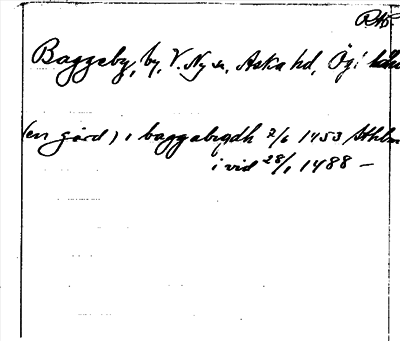 Baggeby, by, V. Ny sn, Aska hd, Ög l
(en gård) i baggabygdh 2/6 1453 Sthlm
i vid 28/1 1488 —